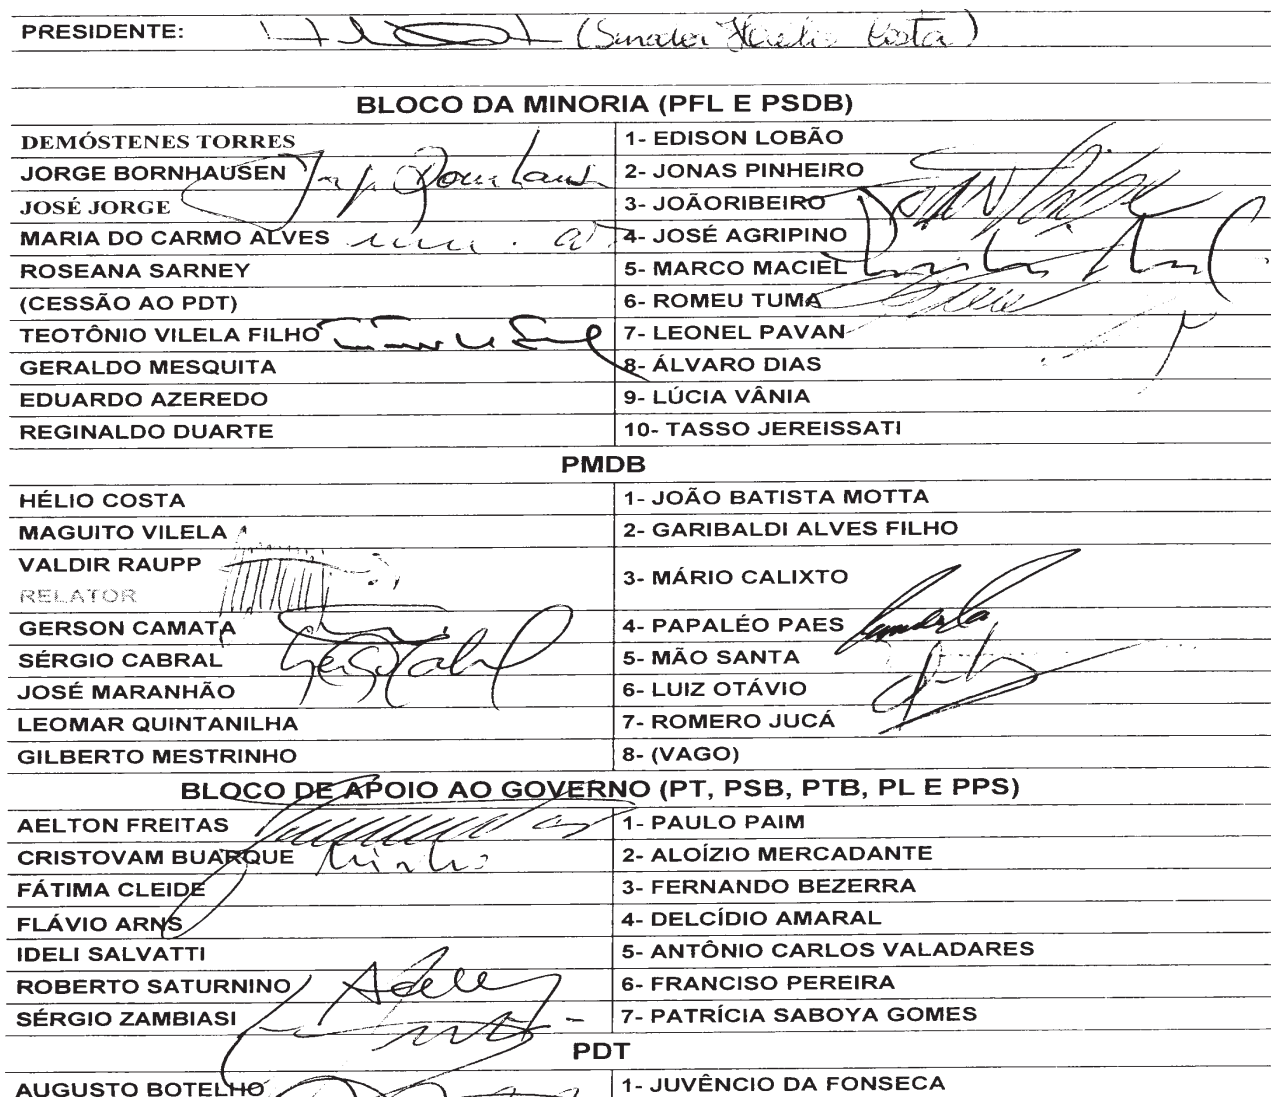 PRESIDENTE: (Senador Hélio Costa)
BLOCO DA MINORIA (PFL E PSDB)
DEMÓSTENES TORRES 1- EDISON LOBÃO
JORGE BORNHAUSEN Jorge Bornhausen 2- JONAS PINHEIRO
JOSÉ JORGE 3- JOÃORIBEIRO
MARIA DO CARMO ALVES 4- JOSÉ AGRIPINO
ROSEANA SARNEY 5- MARCO MACIEL
(CESSÃO AO PDT) 6- ROMEU TUMA
TEOTÔNIO VILELA FILHO 7- LEONEL PAVAN
GERALDO MESQUITA 8- ÁLVARO DIAS
EDUARDO AZEREDO 9- LÚCIA VÂNIA
REGINALDO DUARTE 10- TASSO JEREISSATI
PMDB
HÉLIO COSTA 1- JOÃO BATISTA MOTTA
MAGUITO VILELA 2- GARIBALDI ALVES FILHO
VALDIR RAUPP 3- MÁRIO CALIXTO
RELATOR
GERSON CAMATA 4- PAPALÉO PAES
SÉRGIO CABRAL 5- MÃO SANTA
JOSÉ MARANHÃO 6- LUIZ OTÁVIO
LEOMAR QUINTANILHA 7- ROMERO JUCÁ
GILBERTO MESTRINHO 8- (VAGO)
BLOCO DE APOIO AO GOVERNO (PT, PSB, PTB, PL E PPS)
AELTON FREITAS 1- PAULO PAIM
CRISTOVAM BUARQUE 2- ALOÍZIO MERCADANTE
FÁTIMA CLEIDE 3- FERNANDO BEZERRA
FLÁVIO ARNS 4- DELCÍDIO AMARAL
IDELI SALVATTI 5- ANTÔNIO CARLOS VALADARES
ROBERTO SATURNINO 6- FRANCISO PEREIRA
SÉRGIO ZAMBIASI 7- PATRÍCIA SABOYA GOMES
PDT
AUGUSTO BOTELHO 1- JUVÊNCIO DA FONSECA